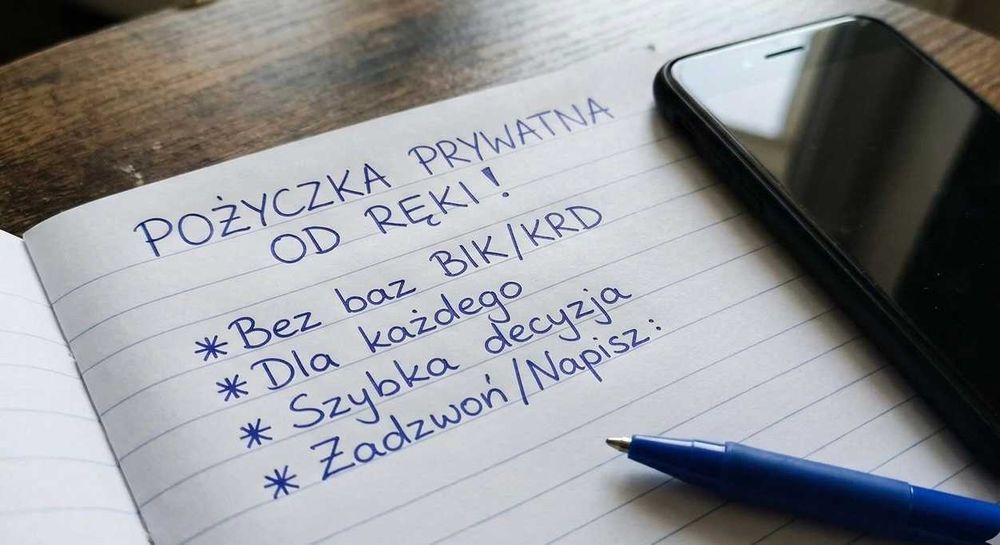 POŻYCZKA PRYWATNA
OD RĘKI!
* Bez baz BIK/KRD
* Dla każdego
* Szybka decyzja
* Zadzwoń/Napisz: